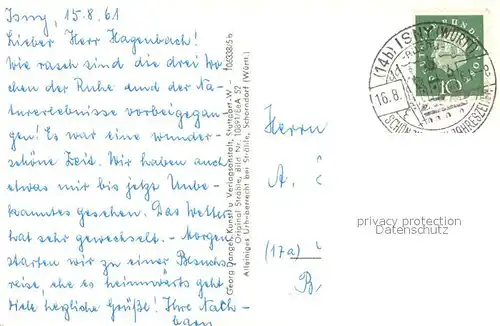 Isny, 15.8.61
Lieber Herr Hagenbach!
Wie rasch sind die drei Wo-
chen der Ruhe und der Na-
turerlebnisse vorbeigegan-
gen! Es war eine wunder-
schöne Zeit. Wir haben auch
etwas mir bis jetzt Unbe-
kanntes gesehen. Das Wetter
hat sehr gewechselt. - Morgen
starten wir zu einer Besuchs-
reise, ehe es heimwärts geht.
Viele herzliche Grüße! Ihre Nach-
barn
Georg Dangel, Kunst- u. Verlagsanstalt, Stuttgart-W. - 108338/5b
Original Strähle, Bild Nr. 10891 EeA 52
Alleiniges Urheberrecht bei Strähle, Schorndorf (Württ.)
(14b) ISNY (WÜRTT)
16.8.
10
Herrn
A.
(17a)
B
privacy protection
Datenschutz